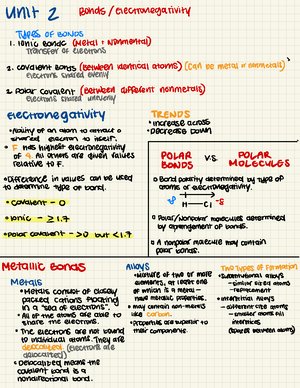 Unit 2
Bonds / electronegativity
Types of Bonds
1. Ionic Bonds (Metal + Nonmetal)
Transfer of electrons
2. Covalent Bonds (Between identical atoms) (Can be metal or nonmetals)
electrons shared evenly
2. Polar Covalent (Between different nonmetals)
electrons shared unevenly
Electronegativity
• Ability of an atom to attract a
shared electron to itself.
• F has highest electronegativity
of 4. All others are given values
relative to F.
• Difference in values can be used
to determine type of bond.
• Covalent - 0
• Ionic - ≥ 1.7
• Polar covalent - >0 but <1.7
TRENDS
• Increase across
• Decrease down
POLAR BONDS
V.S.
POLAR MOLECULES
• Bond polarity determined by type of
atoms or electronegativity.
H-Cl
• Polar/Nonpolar molecules determined
by arrangement of bonds.
• A nonpolar molecule may contain
polar bonds.
Metallic Bonds
Metals
• Metals consist of closely
packed cations floating
in a "sea of electrons".
• All of the atoms are able to
share the electrons.
• The electrons are not bound
to individual atoms. They are
delocalized. (electrons are
delocalized)
• Delocalized means the
covalent bond is a
nondirectional bond.
Alloys
• Mixture of two or more
elements, at least one
of which is a metal -
have metallic properties.
• may contain non-metals
like carbon.
• Properties are superior to
their components.
Two Types of Formation
• Substitutional Alloys
- similar sized atoms
- replacement
• Interstitial Alloys
- different size atoms
- smaller atoms fill
interstices
(spaces between atoms)